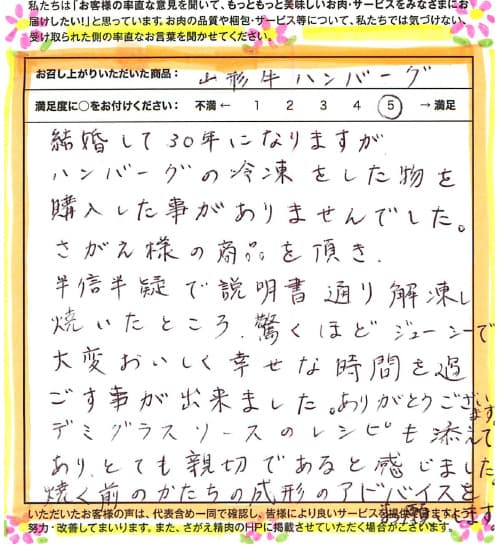 私たちは「お客様の率直な意見を聞いて、もっともっと美味しいお肉・サービスをみなさまにお
届けしたい!」と思っています。お肉の品質や梱包・サービス等について、私たちでは気づけない、
受け取られた側の率直なお言葉を聞かせてください。
お召し上がりいただいた商品: 山形牛ハンバーグ
満足度に○をお付けください: 不満 ← 1 2 3 4 5 → 満足
結婚して30年になりますが
ハンバーグの冷凍をした物を
購入した事がありませんでした。
さがえ様の商品を頂き、
半信半疑で説明書通り解凍し
焼いたところ、驚くほどジューシーで
大変おいしく幸せな時間を過
ごす事が出来ました。ありがとうございます。
デミグラスソースのレシピも添えて
あり、とても親切であると感じました。
焼く前のかたちの成形のアドバイスを
お願います
いただいたお客様の声は、代表含め一同で確認し、皆様により良いサービスを提供できますよう
努力・改善してまいります。また、さがえ精肉のHPに掲載させていただく場合がございます。